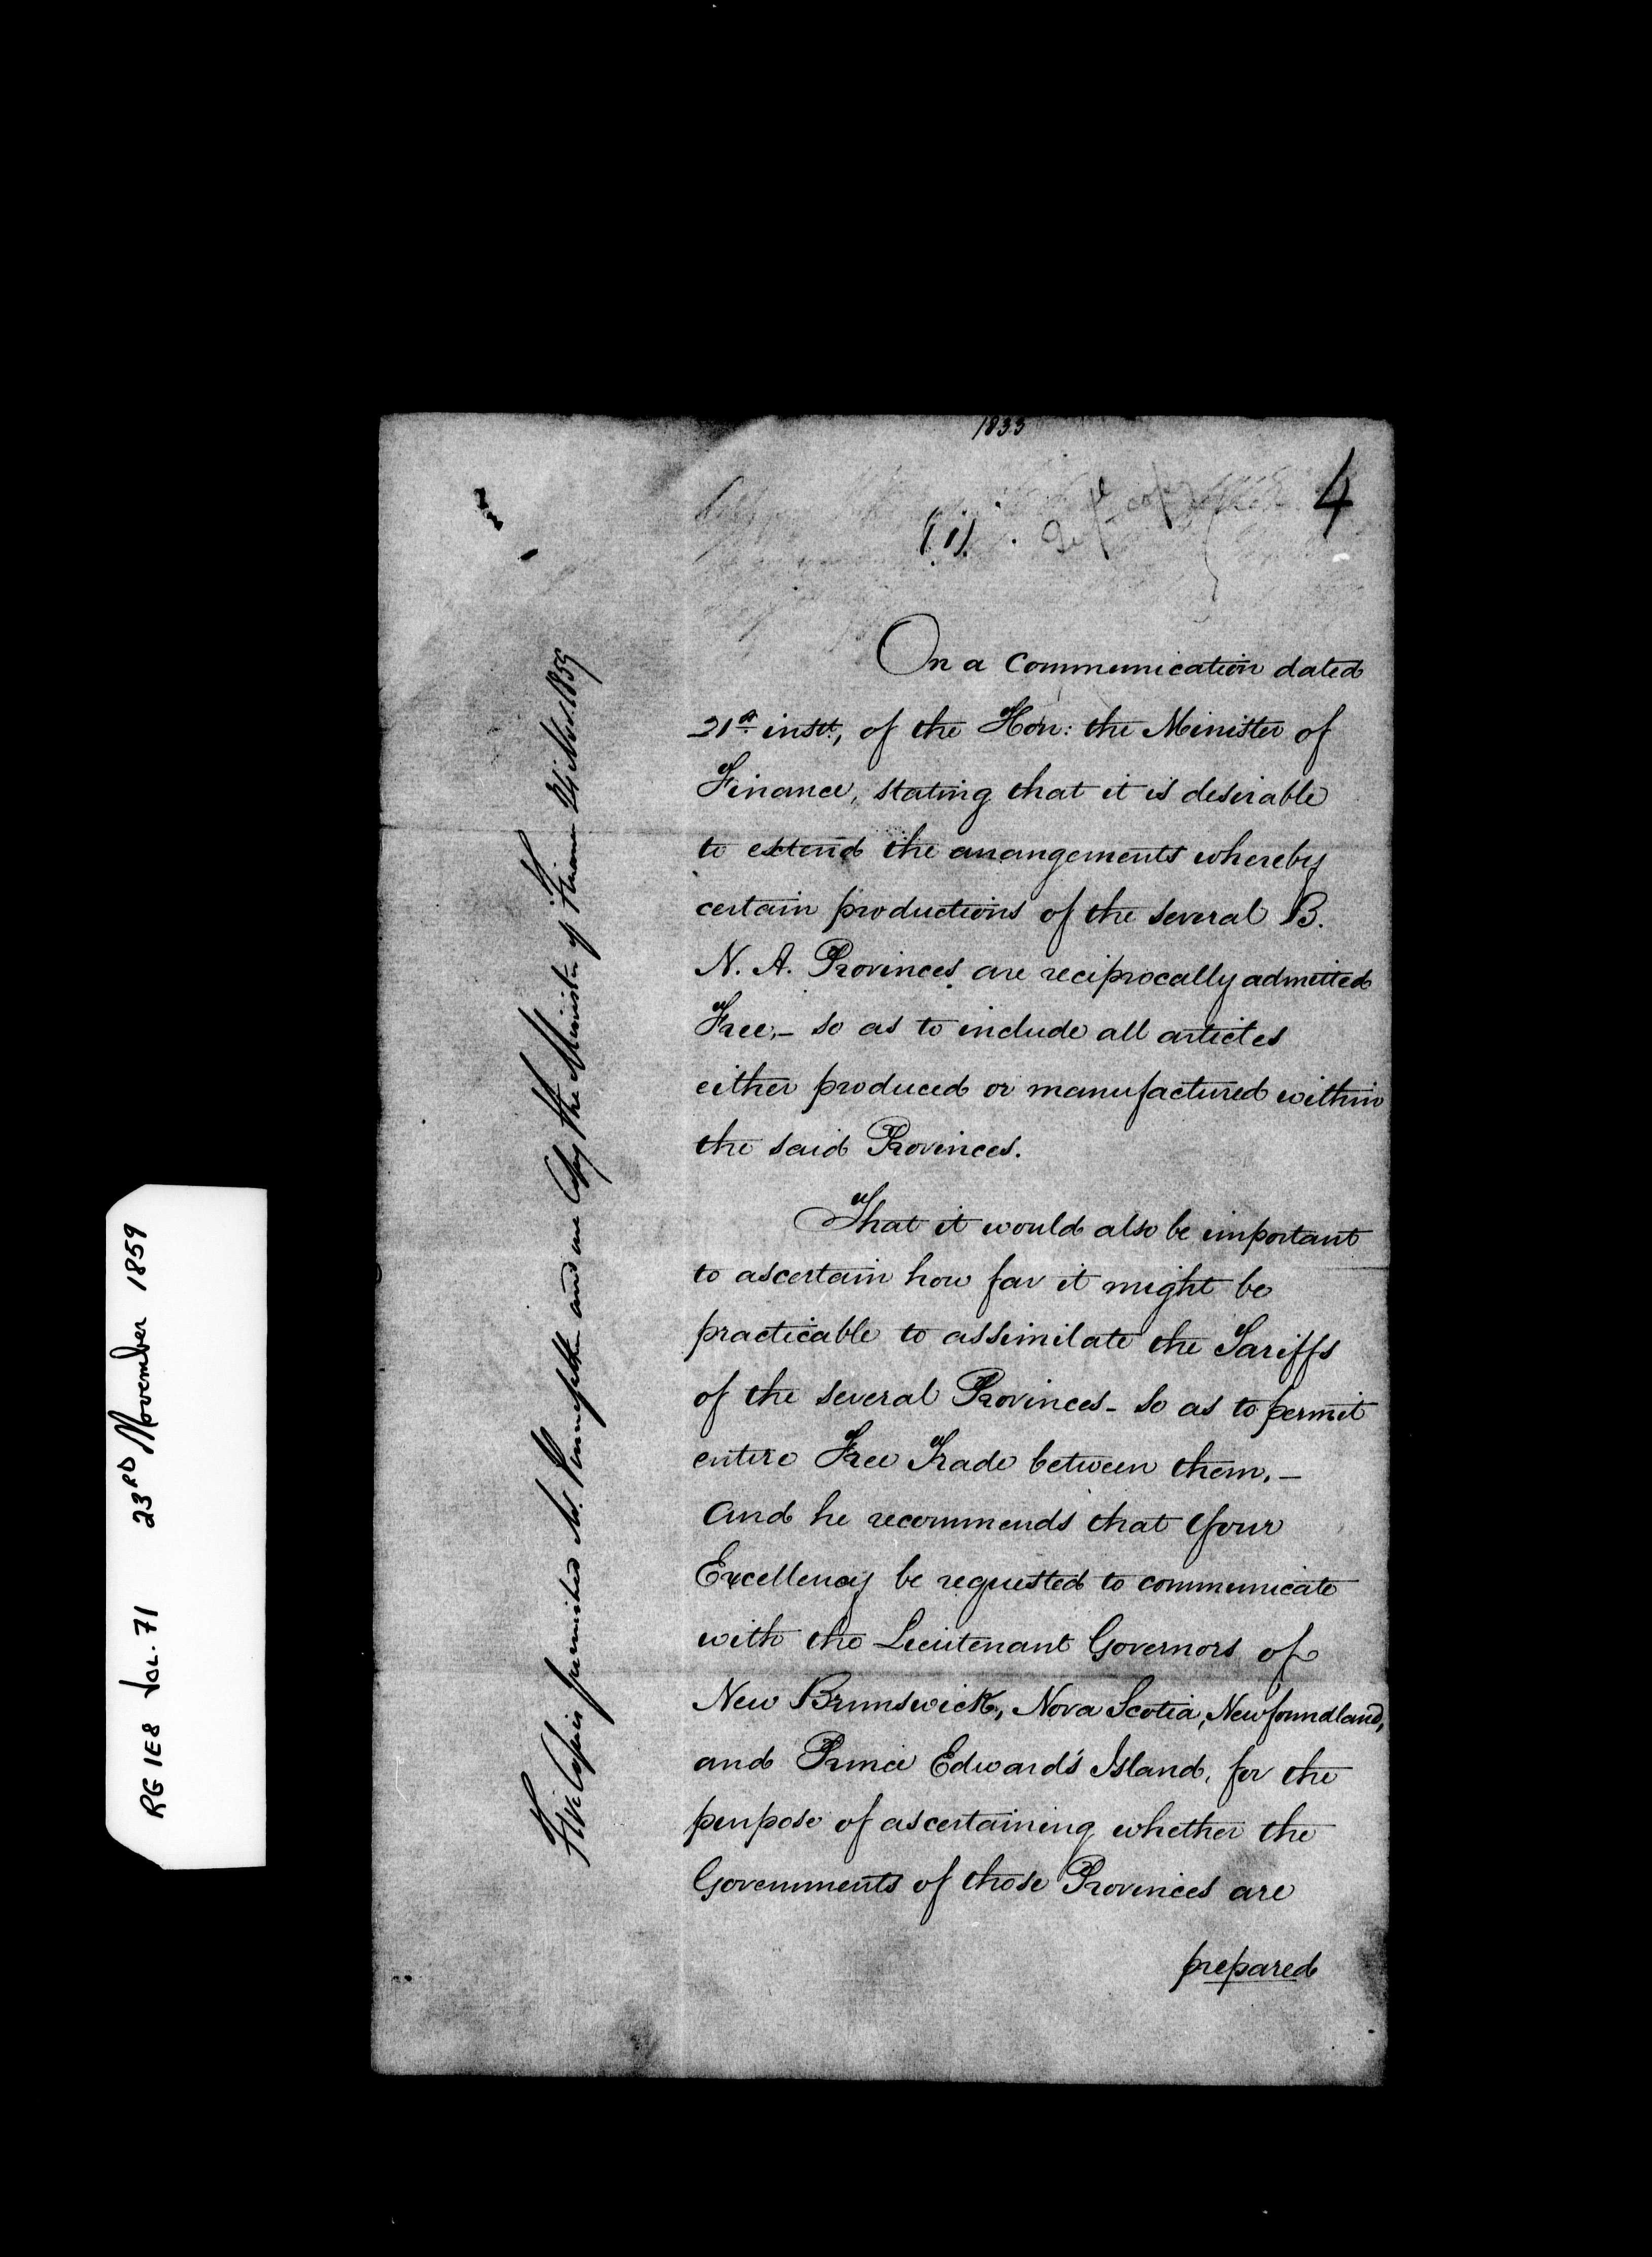 1833
4
(1)
On a Communication dated
21st instt, of the Hon: the Minister of
Finance, stating that it is desirable
to extend the arrangements whereby
certain productions of the several B.
N. A. Provinces are reciprocally admitted
Free,- so as to include all articles
either produced or manufactured within
the said Provinces.
That it would also be important
to ascertain how far it might be
practicable to assimilate the Tariffs
of the several Provinces- so as to permit
entire Free Trade between them,-
and he recommends that Your
Excellency be requested to communicate
with the Lieutenant Governors of
New Brunswick, Nova Scotia, Newfoundland,
and Prince Edward's Island, for the
purpose of ascertaining whether the
Governments of those Provinces are
prepared
Five Copies furnished Mr. and one Copy the Minister of Finance 24 Nov. 1859
RG 1E8 Vol. 71 23RD November 1859